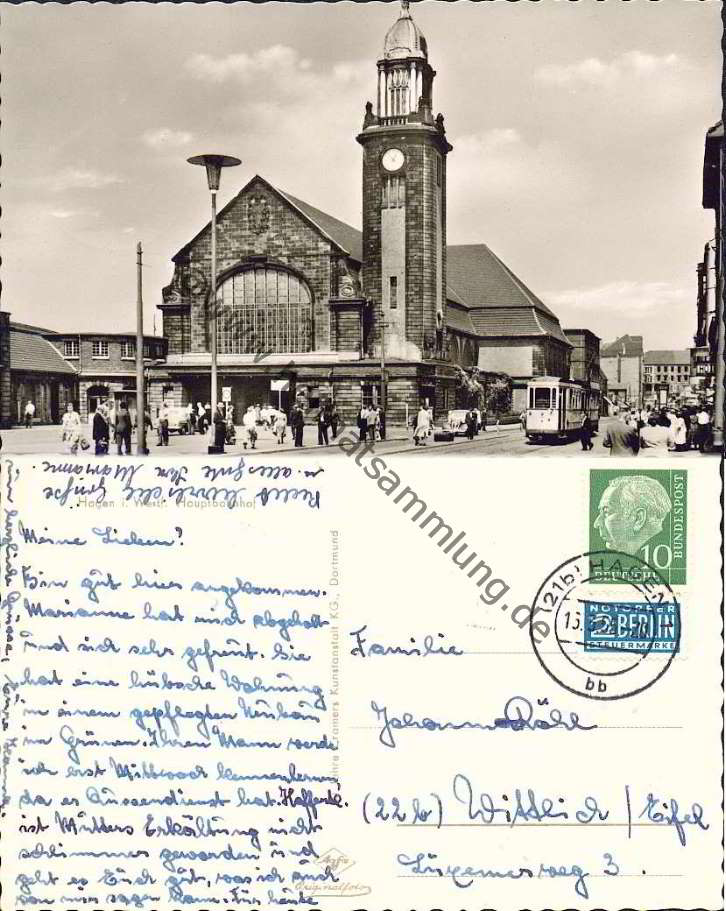 Hagen i. Westf. Hauptbahnhof
Recht herzliche Grüße
u. alles gute Ihre Marianne.
Meine Lieben!
Bin gut hier angekommen.
Marianne hat mich abgeholt
und sich sehr gefreut. Sie
hat eine hübsche Wohnung
in einem gepflegten Neubau
im Grünen. Ihren Mann werde
ich erst Mittwoch kennenlernen,
da er Aussendienst hat. Hoffentl.
ist Mutters Erkältung nicht
schlimmer geworden und
geht es Euch gut, was ich auch
von mir sagen kann. Für heute
nur herzliche Grüsse, Eure
Kramers Kunstanstalt KG., Dortmund
Agfa
Originalfoto
DEUTSCHE
BUNDESPOST
10
NOTOPFER
2 BERLIN
STEUERMARKE
(21b) HAGEN
bb
Familie
Johann Röhl
(22b) Wittlich / Eifel
Luxemerweg 3.
© www.heimatsammlung.de